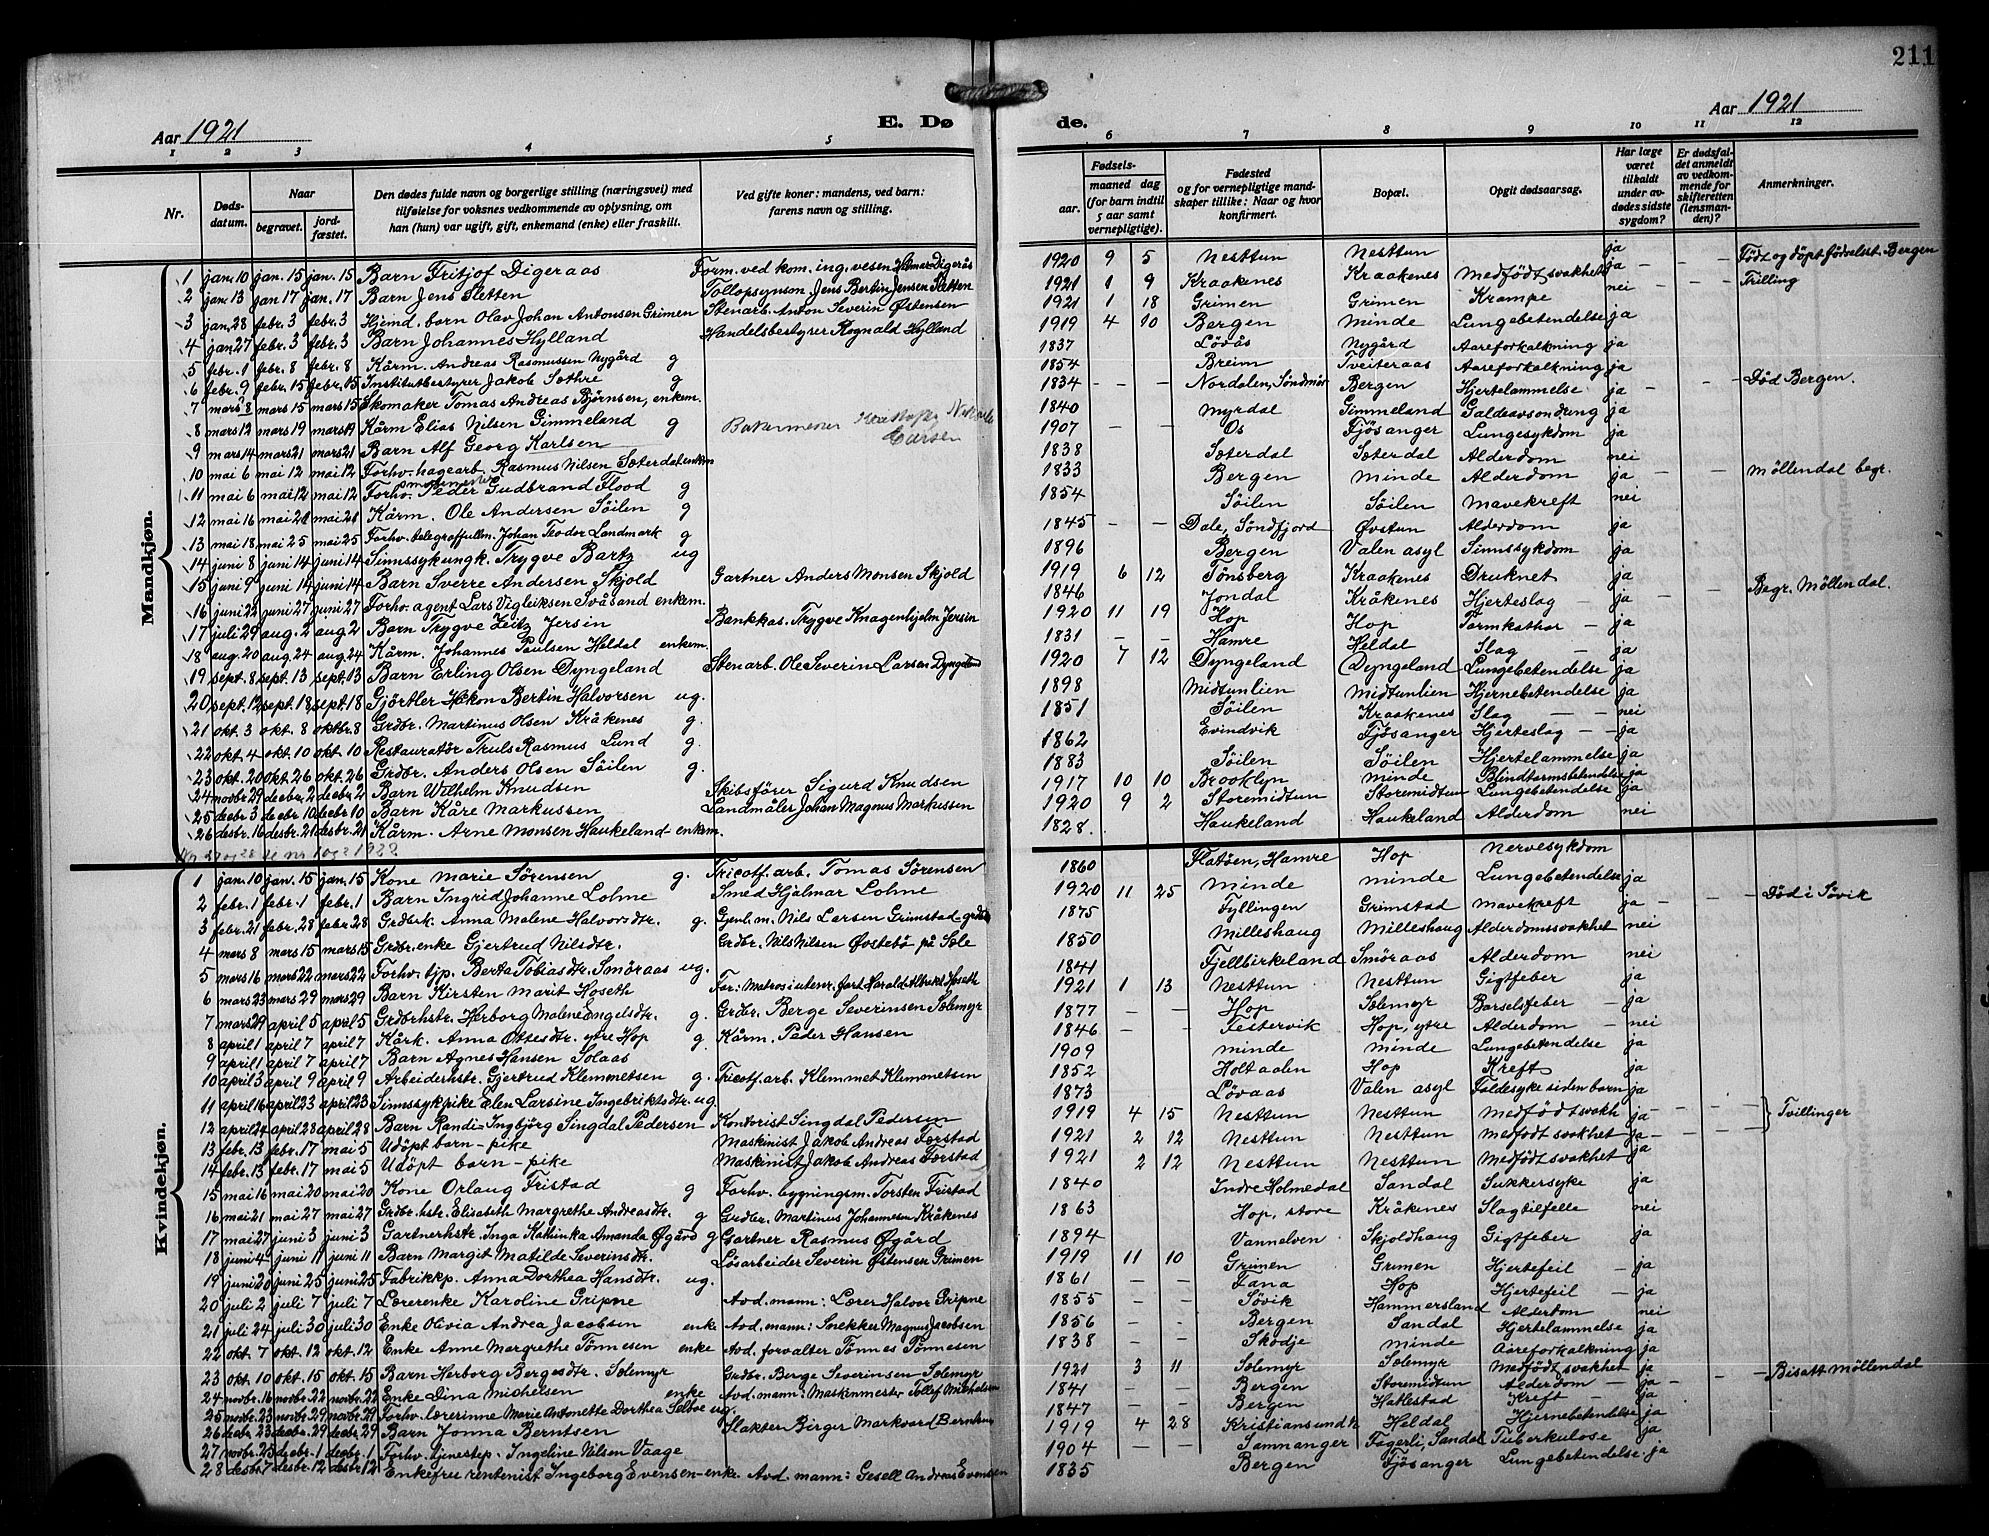 211
Aar 1921
E. Dø
de.
Aar 1921
1 2 3 4 5 6 7 8 9 10 11 12
Nr.
Døds-
datum.
Naar
begravet.
jord-
fæstet.
Den dødes fulde navn og borgerlige stilling (næringsvei) med
tilføielse for voksnes vedkommende av oplysning, om
han (hun) var ugift, gift, enkemand (enke) eller fraskilt.
Ved gifte koner: mandens, ved barn:
farens navn og stilling.
Fødsels-
aar.
maaned dag
(for barn indtil
5 aar samt
vernepligtige).
Fødested
og for vernepligtige mand-
skaper tillike: Naar og hvor
konfirmert.
Bopæl.
Opgit dødsaarsag.
Har læge
været
tilkaldt
under av-
dødes sidste
sygdom?
Er dødsfal-
det anmeldt
av vedkom-
mende for
skifteretten
(lensman-
den)?
Anmerkninger.
Mandkjøn.
1 jan. 10 jan. 15 jan. 15 Barn Fritjof Digeraas Form. ved kom. ing. vesen Hilmar Digerås 1920 9 5 Nesttun Nesttun ja Født og døpt fødselsst. Bergen
2 jan. 13 jan 17 jan. 17 Barn Jens Sletten Tollopsynsm. Jens Bertin Jensen Sletten 1921 1 9 Kraakenes Kraakenes Medfødt svakhet ja – – – Trilling
3 jan. 28 febr. 3 febr. 3 Hjemd. barn Olav Johan Antonsen Grimen Stenarb. Anton Severin Østensen 1921 1 18 Grimen Grimen Krampe nei
4 jan. 27 febr. 3 febr. 3 Barn Johannes Hylland Handelsbestyrer Rognald Hylland 1919 4 10 Bergen Minde Lungebetendelse ja
5 febr. 1 febr. 8 febr. 8 Kårm. Andreas Rasmussen Nygård g 1837 Løvås Nygård Aareforkalkning ja
6 febr. 9 febr. 15 febr. 15 Institutbestyrer Jakob Sæthre g 1854 Breim Tveiteraas Aareforkalkning ja
7 mars 8 mars 15 mars 15 Skomaker Tomas Andreas Björnsen, enkem. 1834 – – – Nordalen, Søndmør Bergen Hjertelammelse ja – – Død Bergen.
8 mars 12 mars 19 mars 19 Kårm Elias Nilsen Gimmeland g 1840 Myrdal Gimmeland Galdeavsondring ja
9 mars 14 mars 21 mars 21 Barn Alf Georg Karlsen Larsen 1907 Os Fjøsanger Lungesykdom ja
10 mai 6 mai 12 mai 12 Forhv. hagearb. Rasmus Nilsen Sæterdal enkem 1838 Sæterdal Sæterdal Alderdom nei
11 mai 6 mai 12 mai 12 Forhv. Peder Gudbrand Flood g 1833 Bergen Minde Alderdom ja – – Möllendal begr.
12 mai 16 mai 21 mai 21 Kårm. Ole Andersen Söilen g 1854 Söilen Söilen Mavekreft nei
13 mai 18 mai 25 mai 25 Forhv. telegraffullm. Johan Teodor Landmark g 1845 – – Dale, Söndfjord Øvstun Alderdom ja
14 juni 8 juni 14 juni 14 Sinnssyk ungk. Trygve Bartz ug 1896 Bergen Valen asyl Sinnssykdom ja
15 juni 9 juni 14 juni 14 Barn Sverre Andersen Skjold Gartner Anders Monsen Skjold 1919 6 12 Tønsberg Kraakenes Druknet ja
16 juni 22 juni 27 juni 27 Forhv. agent Lars Vigleiksen Svåsand enkem. 1846 Jondal Kråkenes Hjerteslag – ja – – Begr. Möllendal.
17 juli 29 aug. 2 aug. 2 Barn Trygve Zeitz Jersin Bankkas. Trygve Knagenhjelm Jersin 1920 11 19 Hop Hop Tarmkathar – ja
18 aug. 20 aug. 24 aug. 24 Kårm. Johannes Paulsen Heldal enkem. 1831 – – Hamre Heldal Slag – ja
19 sept. 8 sept. 13 sept. 13 Barn Erling Olsen Dyngeland Stenarb. Ole Severin Larsen Dyngeland 1920 7 12 Dyngeland Dyngeland Lungebetendelse ja
20 sept. 12 sept. 18 sept. 18 Gjörtler Håkon Bertin Halvorsen ug. 1898 Midtunlien Midtunlien Hjernebetendelse ja
21 okt. 3 okt. 8 oktbr. 8 Grdbr. Martinus Olsen Kråkenes g. 1851 Söilen Kraakenes Slag – – nei
22 okt. 4 okt. 10 okt. 10 Restauratör Truls Rasmus Lund g. 1862 Evindvik Fjøsanger Hjerteslag – ja
23 okt. 20 okt. 26 okt. 26 Grdbr. Anders Olsen Söilen g. 1883 Söilen Söilen Hjertelammelse ja
24 novbr. 29 decbr. 2 decbr. 2 Barn Wilhelm Knudsen Skibsförer Sigurd Knudsen 1917 10 10 Brooklyn Minde Blindtarmsbetendelse ja
25 decbr. 3 decbr. 10 decbr. 10 Barn Kåre Markussen Landmåler Johan Magnus Markussen 1920 9 2 Storemidtun Storemidtun Lungebetendelse ja
26 desbr. 16 desbr. 21 desbr. 21 Kårm. Arne Monsen Haukeland – enkem. 1828. Haukeland Haukeland Alderdom nei
Kvindekjøn.
1 jan. 10 jan. 15 jan. 15 Kone Marie Sörensen g. Tricotf. arb. Tomas Sörensen 1860 Flatöen, Hamre Hop Nervesykdom
2 febr. 1 febr. 1 febr. 1 Barn Ingrid Johanne Lohne Smed Hjalmar Lohne 1920 11 25 Minde Minde Lungebetendelse ja
3 febr. 21 febr. 28 febr. 28 Grdbrk. Anna Malene Halvorsdtr. g. Gjenl. m. Nils Larsen Grimstad grdbr. 1875 Fyllingen Grimstad Mavekreft ja – – – Död i Søvik
4 mars 8 mars 15 mars 15 Grdbr. enke Gjertrud Nilsdtr. Grdbr. Nils Nilsen Øvstebö på Sæle 1850 Milleshaug Milleshaug Alderdomssvakhet nei
5 mars 16 mars 22 mars 22 Forhv. tjp. Berta Tobiasdtr. Smöraas ug. 1841 Fjellbirkeland Smöraas Alderdom nei
6 mars 23 mars 29 mars 29 Barn Kirsten Marit Hoseth Far: Matros i utenr. fart Harald Albrikt Hoseth 1921 1 13 Nesttun Nesttun Gigtfeber ja
7 mars 29 april 5 april 5 Grdbrhstr. Herborg Malene Engelsdtr. g. Grdbr. Berge Severinsen Solemyr 1877 – – Hop Solemyr Barselfeber – ja
8 april 1 april 7 april 7 Kårk. Anna Ottesdtr. ytre Hop g Kårm. Peder Hansen 1846 – – Festervik Hop, ytre Alderdom – nei
9 april 1 april 7 april 7 Barn Agnes Hansen Solaas 1909 Minde Minde Lungebetendelse ja
10 april 3 april 9 april 9 Arbeiderhstr. Gjertrud Klemmetsen g. Tricotf. arb. Klemmet Klemmetsen 1852 Holtaalen Hop Kreft ja
11 april 16 april 23 april 23 Sinnssyk pike Elen Larsine Ingebriktsdtr. ug 1873 Løvaas Valen asyl Faldesyke siden barn ja
12 april 24 april 28 april 28 Barn Randi-Ingbjörg Singdal Pedersen – Kontorist Singdal Pedersen 1919 4 15 Nesttun Nesttun Medfødt svakh. ja
13 febr. 13 febr. 17 mai 5 Udöpt barn – pike Maskinist Jakob Andreas Færstad 1921 2 12 Nesttun Nesttun Medfødt svakhet ja – – – Tvillinger
14 febr. 13 febr. 17 mai 5 Udöpt barn – pike Maskinist Jakob Andreas Færstad 1921 2 12 Nesttun Nesttun Medfødt svakhet ja
15 mai 16 mai 20 mai 20 Kone Orlaug Fristad g Forhv. bygningsm. Torsten Fristad 1840 Indre Holmedal Sandal Sukkersyke ja
16 mai 21 mai 27 mai 27 Grdbr. hstr. Elisabeth Margrethe Andreasdtr. g Grdbr. Martinus Johannesen Kråkenes 1863 Hop, store Kråkenes Slagtilfelle nei
17 mai 27 juni 3 juni 3 Gartnerhstr. Inga Kathinka Amanda Øgård g Gartner Rasmus Øgård 1894 Vannelven Skjoldhaug Gigtfeber ja
18 juni 4 juni 11 juni 11 Barn Margit Matilde Severinsdtr. Løsarbeider Severin Østensen Grimen 1919 11 10 Grimen Grimen Hjertefeil – ja
19 juni 20 juni 25 juni 25 Fabrikkp. Anna Dorthea Hansdtr. ug. 1861 – – Fana Hop Hjertefeil – ja
20 juli 2 juli 7 juli 7 Lærerenke Karoline Gripne Avd. mann: Lærer Halvor Gripne 1855 – – Søvik Hammersland Alderdom nei
21 juli 24 juli 30 juli 30 Enke Olivia Andrea Jacobsen enke Avd. mann: Snekker Magnus Jacobsen 1856 – – Bergen Sandal Hjertelammelse ja
22 okt. 7 okt. 12 okt. 12 Enke Anne Margrethe Tönnesen enke Avd. forvalter Tönnes Tönnesen 1838 – – Skodje Minde Aareforkalkning ja
23 okt. 10 okt. 15 okt. 15 Barn Herborg Bergesdtr. Solemyr Grdbr. Berge Severinsen – Solemyr 1921 3 11 Solemyr Solemyr Medfødt svakhet ja
24 novbr. 16 novbr. 22 novbr. 22 Enke Dina Michelsen enke Avd. mann: Maskinmester Tollef Michelsen 1841 – – Bergen Storemidtun Alderdom – ja – – Bisatt Möllendal
25 novbr. 23 novbr. 29 novbr. 29 Forhv. lærerinne Marie Antonette Dorthea Selboe ug. 1847 – – Bergen Hatlestad Kreft – ja
26 decbr. 23 decbr. 29 decbr. 29 Barn Jonna Berntsen Slakter Birger Markvard Berntsen 1919 4 28 Kristiansund N Heldal Hjernebetendelse ja
27 novbr. 25 decbr. 1 decbr. 1 Forhv. tjenestep. Ingeline Nilsen Vaage 1904 – – Samnanger Fagerli, Sandal Tuberkulose ja
28 desbr. 7 desbr. 12 desbr. 12 Enkefru rentenist Ingeborg Evensen – enke. Avd. mann: Gesell Andreas Evensen 1835 Bergen Fjøsanger Lungebetendelse ja